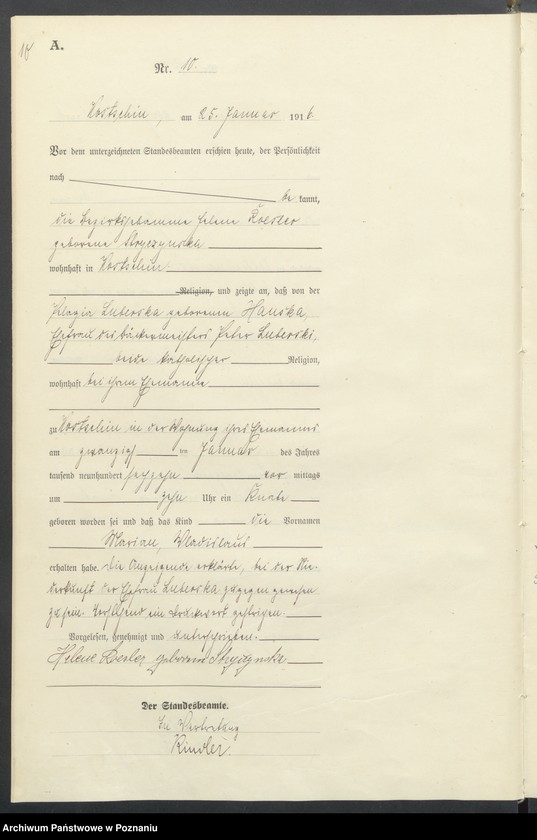 10
A.
Nr. 10.
Kostschin, am 25. Januar 1916.
Vor dem unterzeichneten Standesbeamten erschien heute, der Persönlichkeit
nach
be kannt,
die Bezirkshebamme Helene Koesler
geborene
wohnhaft in Kostschin
Religion, und zeigte an, daß von der
Pelagia Luberska geborenen Hanska,
Ehefrau des Bäckermeisters Peter Luberski,
beide katholischer Religion,
wohnhaft bei ihrem Ehemanne
zu Kostschin in der Wohnung ihres Ehemannes
am zwanzig ten Januar des Jahres
tausend neunhundert sechzehn vor mittags
um zehn Uhr ein Knabe
geboren worden sei und daß das Kind die Vornamen
Marian, Wladislaus
erhalten habe. Die Anzeigende erklärte, bei der Nie-
derkunft der Ehefrau Luberska zugegen gewesen
zu sein. Vorstehend ein Druckwort gestrichen.
Vorgelesen, genehmigt und unterschrieben.
Helene geborene
Der Standesbeamte.
In Vertretung
Kindler.
Archiwum Państwowe w Poznaniu